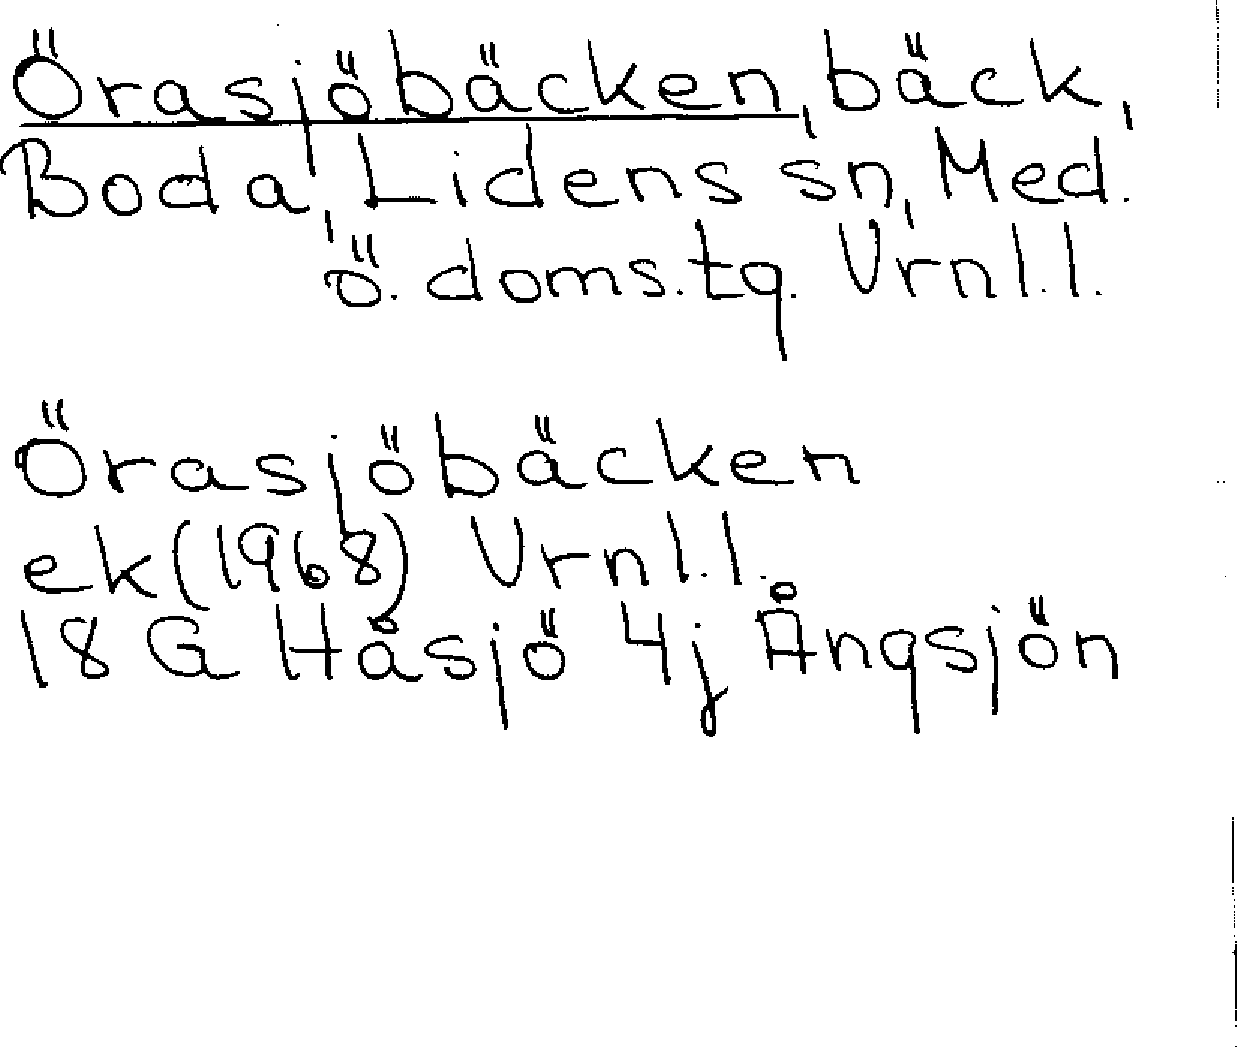 Örasjöbäcken, bäck,
Boda, Lidens sn, Med.
ö. doms.tg. Vrnl.l.
Örasjöbäcken
ek (1968) Vrnl.l.
18 G Håsjö 4j Ångsjön